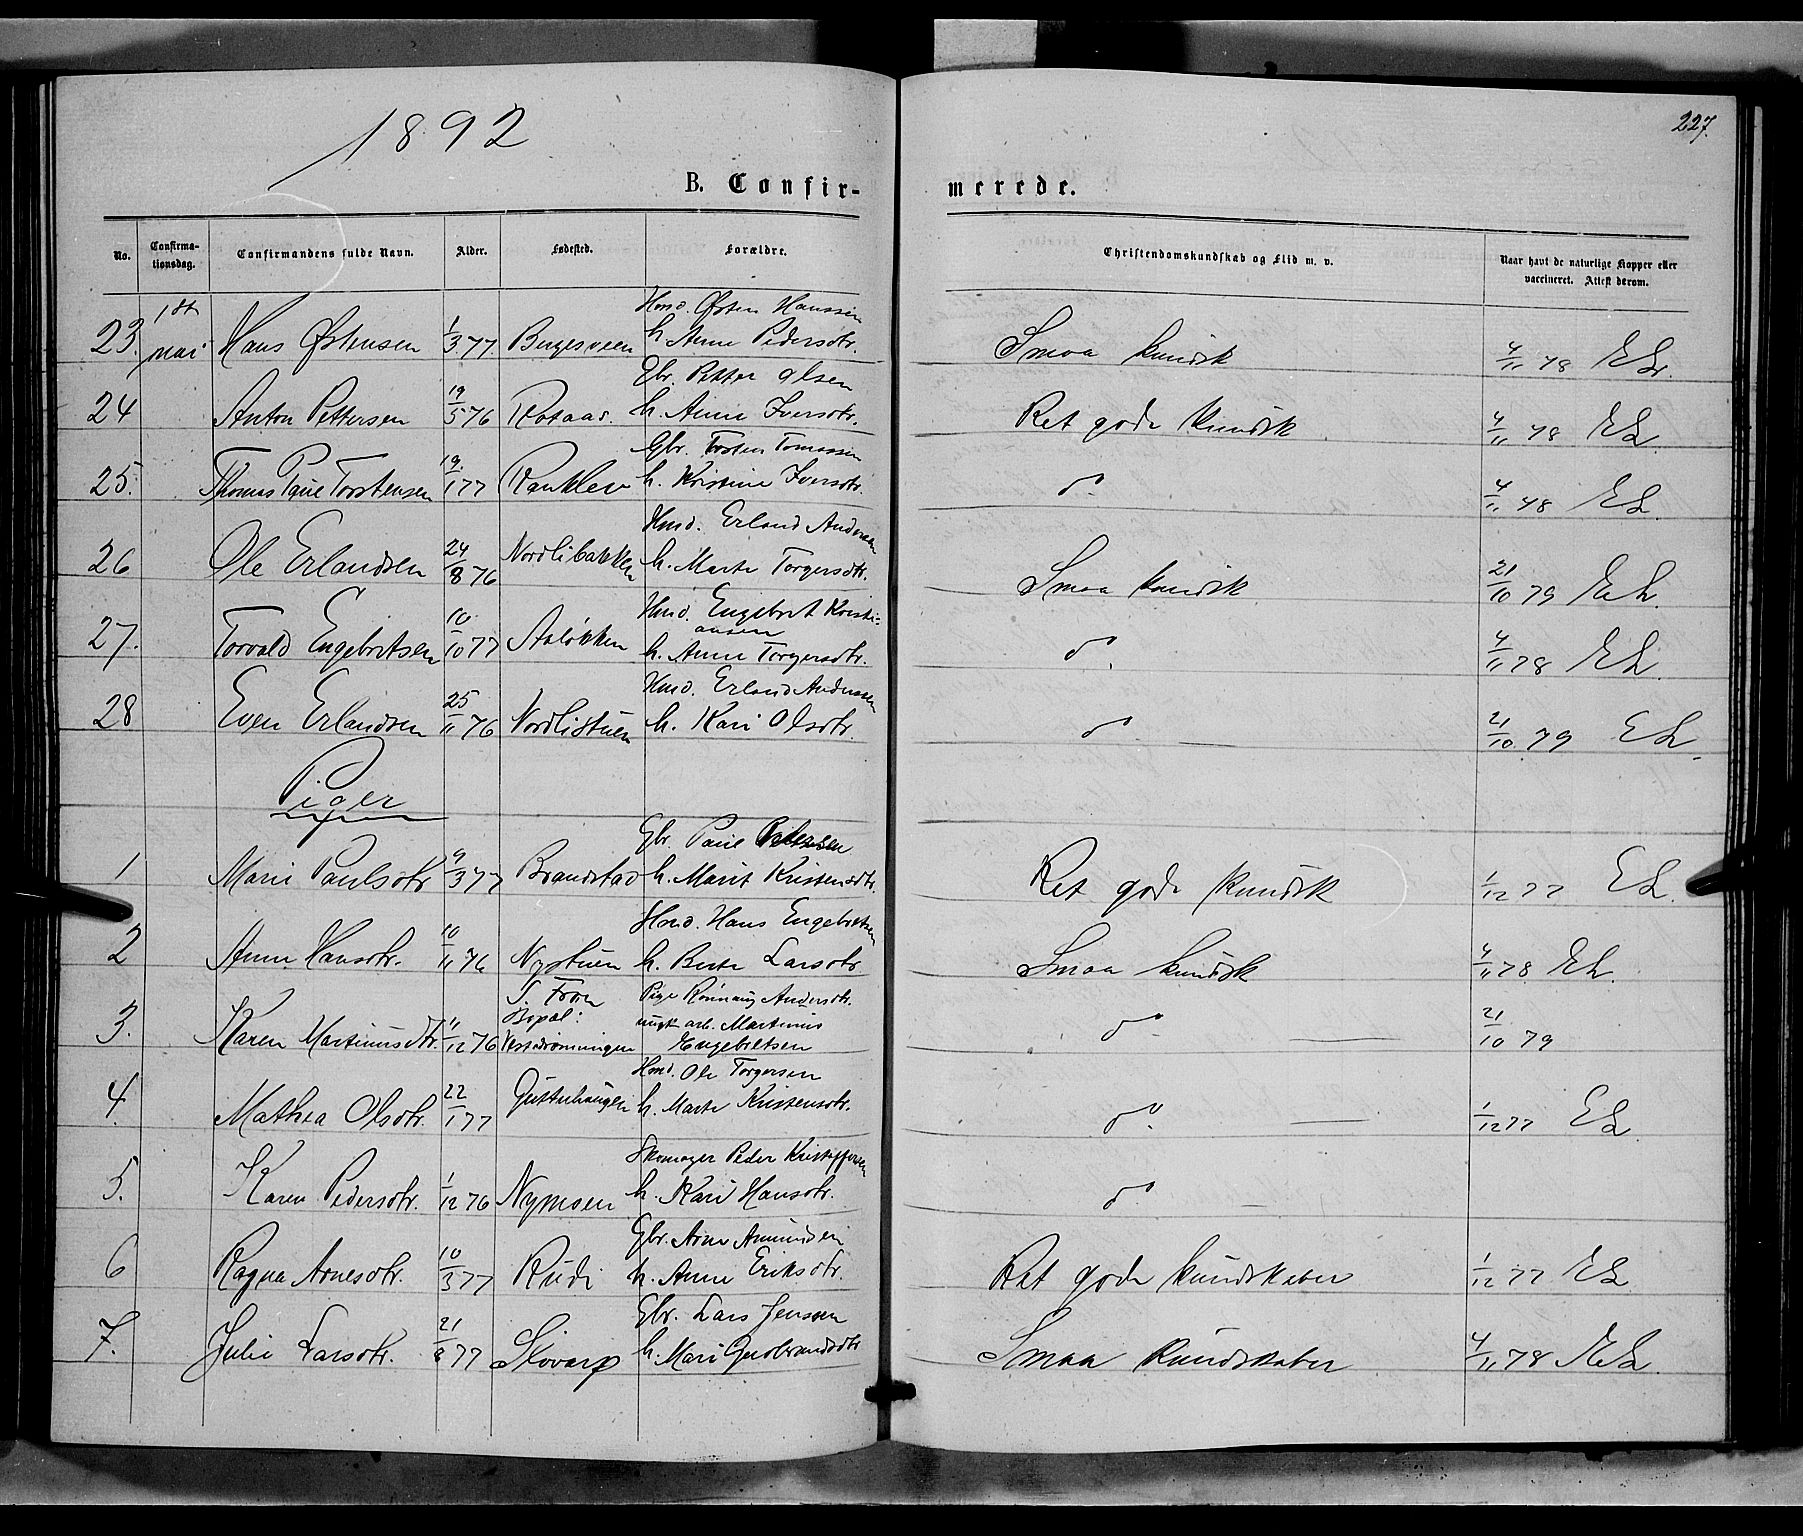 1892
227.
B. Confir-
merede.
No.
Confirma-
tionsdag.
Confirmandens fulde Navn.
Alder.
Fødested.
Forældre.
Christendomskundskab og Flid m. v.
Naar havt de naturlige Kopper eller
vaccineret. Attest derom.
Hmd. Østen Hanssen
23. 1ste mai Hans Østensen 1/3 77. Bugesveen h. Anne Pedersdtr. Smaa kundsk 4/11 78 EL.
Gbr. Petter Olsen
24 Anton Pettersen 19/5 76 Rotaas. h. Anne Iversdtr. Ret gode kundsk 4/11 78 EL.
Gbr. Torsten Tomassen
25. Thomas Paul Torstensen 19./1 77 Ranklev h. Kristine Iversdtr. do. 4/11 78 EL.
Hmd. Erland Andersen
26 Ole Erlandsen 24/8 76 Nordlibakken h. Marte Torgersdtr. Smaa kundsk 21/10 79 EL.
Hmd. Engebret Kristi-
ansen
27. Torvald Engebretsen 10./10 77 Aaløkken h. Anne Torgersdtr. do. 4/11 78 EL.
Hmd. Erland Andersen
28 Even Erlandsen 25/11 76 Nordlistuen h. Kari Olsdtr. do 21/10. 79 EL.
Piger
Gbr. Paul Pedersen
1 Marie Paulsdtr 9/3 77 Brandstad h. Marit Kristensdtr. Ret gode kundsk 1/12 77 EL.
Hmd. Hans Engebretsen
2 Anne Hansdtr. 10/11 76 Nystuen h. Berte Larsdtr Smaa kundsk 4/11 78 EL.
S. Fron Pige Rønnaug Andersdtr.
Bopæl: ungk arb. Martinus
3. Karen Martinusdtr. 11/12 76 Engebretsen do. 21/10 79
Hmd. Ole Torgersen
4. Mathea Olsdtr. 22/1 77 h. Marte Kristensdtr. do. 1/12 77 EL.
Skomager Peder Kristoffersen
5. Karen Pedersdtr. 1/12 76 Nymoen h. Kari Hansdtr. do.
Gbr. Arne Amundsen
6 Ragna Arnesdtr. 10/3 77 Rudi h. Anne Eriksdtr. Ret gode kundskaber 1/12 77 EL
Gbr. Lars Jenssen
7. Julie Larsdtr. 21/8 77 Slovarp h. Mari Gudbrandsdtr Smaa kundskaber 4/11 78 EL.